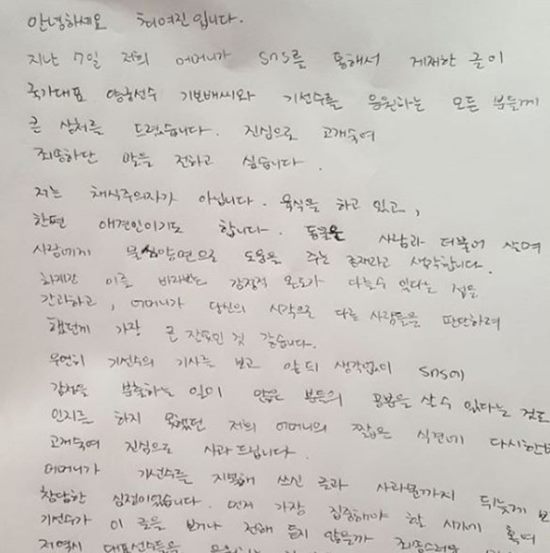 안녕하세요 최여진입니다.
지난 7일 저희 어머니가 SNS를 통해서 게재한 글이
국가대표 양궁선수 기보배씨와 기선수를 응원하는 모든 분들께
큰 상처를 드렸습니다. 진심으로 고개숙여
죄송하단 말을 전하고 싶습니다.
저는 채식주의자가 아닙니다. 육식을 하고 있고,
한편 애견인이기도 합니다. 동물은 사람과 더불어 살며
사람에게 물심양면으로 도움을 주는 존재라고 생각합니다.
하지만 이를 바라보는 감정적 온도가 다를수 있다는 점을
간과하고, 어머니가 당신의 시각으로 다른 사람들을 판단하려
했던게 가장 큰 잘못인 것 같습니다.
우연히 기선수의 기사를 보고 앞뒤 생각없이 SNS에
감정을 분출하는 일이 많은 분들의 공분을 살 수 있다는 것도
인지를 하지 못했던 저희 어머니의 짧은 식견에 다시한번
고개숙여 진심으로 사과 드립니다.
어머니가 기선수를 지명해 쓰신 글과 사과문까지 뒤늦게
참담한 심정이었습니다. 먼저 가장 집중해야 할 시기에 혹여
기선수가 이 글을 보거나 전해 듣지 않을까
저역시 대표선수들을